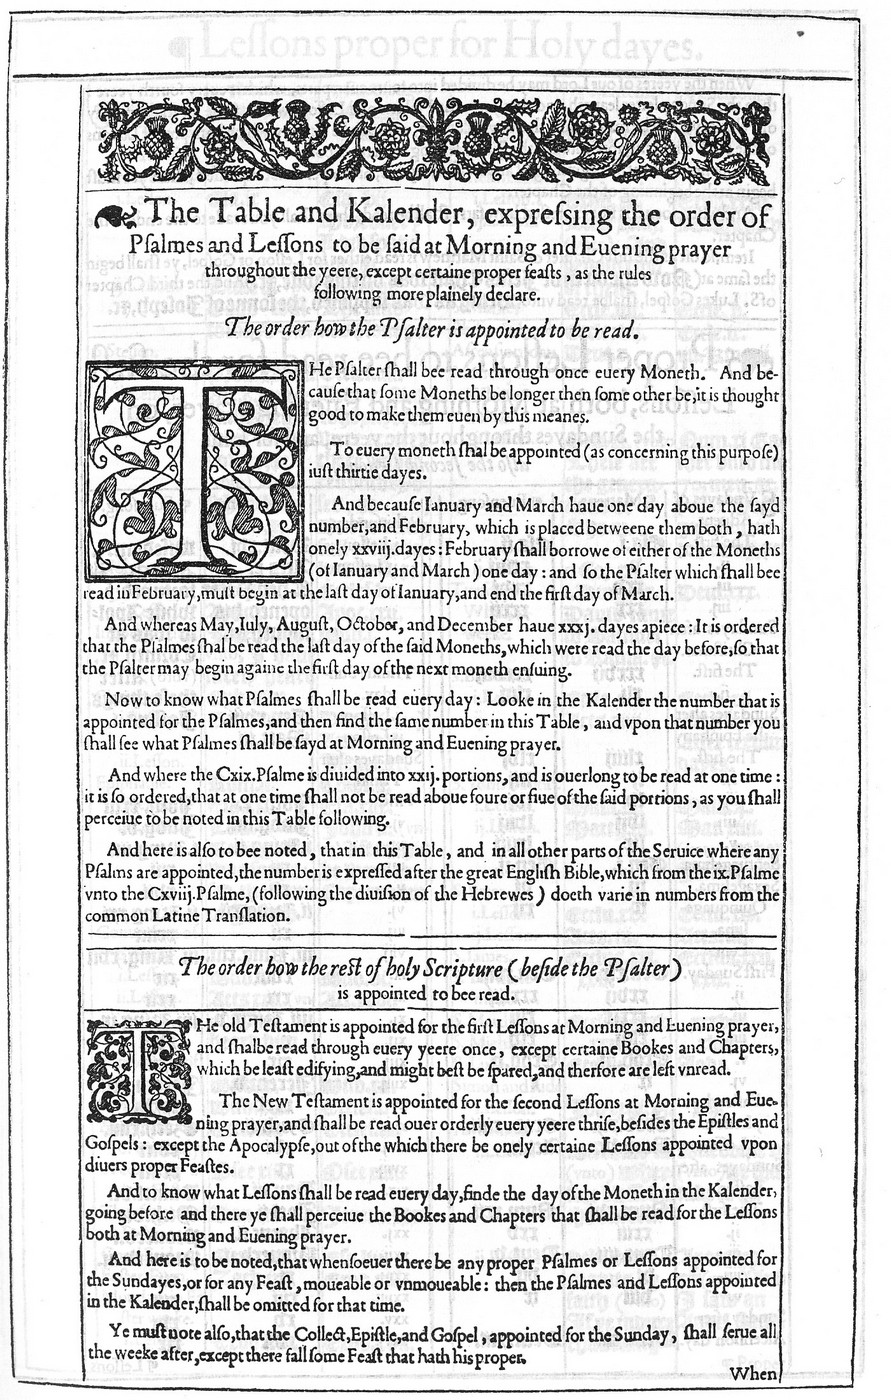 ¶ Leſſons proper for Holy dayes.
The Table and Kalender, expreſsing the order of
Pſalmes and Leſſons to be ſaid at Morning and Euening prayer
throughout the yeere, except certaine proper feaſts, as the rules
following more plainely declare.
The order how the Pſalter is appointed to be read.
THe Pſalter ſhall bee read through once euery Moneth. And be-
cauſe that ſome Moneths be longer then ſome other be, it is thought
good to make them euen by this meanes.
To euery moneth ſhal be appointed (as concerning this purpoſe)
iuſt thirtie dayes.
And becauſe Ianuary and March haue one day aboue the ſayd
number, and February, which is placed betweene them both, hath
onely xxviij. dayes: February ſhall borrowe of either of the Moneths
(of Ianuary and March) one day: and ſo the Pſalter which ſhall bee
read in February, muſt begin at the laſt day of Ianuary, and end the firſt day of March.
And whereas May, Iuly, Auguſt, October, and December haue xxxj. dayes apiece: It is ordered
that the Pſalmes ſhal be read the laſt day of the ſaid Moneths, which were read the day before, ſo that
the Pſalter may begin againe the firſt day of the next moneth enſuing.
Now to know what Pſalmes ſhall be read euery day: Looke in the Kalender the number that is
appointed for the Pſalmes, and then find the ſame number in this Table, and vpon that number you
ſhall ſee what Pſalmes ſhall be ſayd at Morning and Euening prayer.
And where the Cxix. Pſalme is diuided into xxij. portions, and is ouerlong to be read at one time:
it is ſo ordered, that at one time ſhall not be read aboue foure or fiue of the ſaid portions, as you ſhall
perceiue to be noted in this Table following.
And here is alſo to bee noted, that in this Table, and in all other parts of the Seruice where any
Pſalms are appointed, the number is expreſſed after the great Engliſh Bible, which from the ix. Pſalme
vnto the Cxviij. Pſalme, (following the diuiſion of the Hebrewes) doeth varie in numbers from the
common Latine Tranſlation.
The order how the reſt of holy Scripture (beſide the Pſalter)
is appointed to bee read.
THe old Teſtament is appointed for the firſt Leſſons at Morning and Euening prayer,
and ſhalbe read through euery yeere once, except certaine Bookes and Chapters,
which be leaſt edifying, and might beſt be ſpared, and therfore are left vnread.
The New Teſtament is appointed for the ſecond Leſſons at Morning and Eue-
ning prayer, and ſhall be read ouer orderly euery yeere thriſe, beſides the Epiſtles and
Goſpels: except the Apocalypſe, out of the which there be onely certaine Leſſons appointed vpon
diuers proper Feaſtes.
And to know what Leſſons ſhall be read euery day, finde the day of the Moneth in the Kalender,
going before and there ye ſhall perceiue the Bookes and Chapters that ſhall be read for the Leſſons
both at Morning and Euening prayer.
And here is to be noted, that whenſoeuer there be any proper Pſalmes or Leſſons appointed for
the Sundayes, or for any Feaſt, moueable or vnmoueable: then the Pſalmes and Leſſons appointed
in the Kalender, ſhall be omitted for that time.
Ye muſt note alſo, that the Collect, Epiſtle, and Goſpel, appointed for the Sunday, ſhall ſerue all
the weeke after, except there fall ſome Feaſt that hath his proper.
When